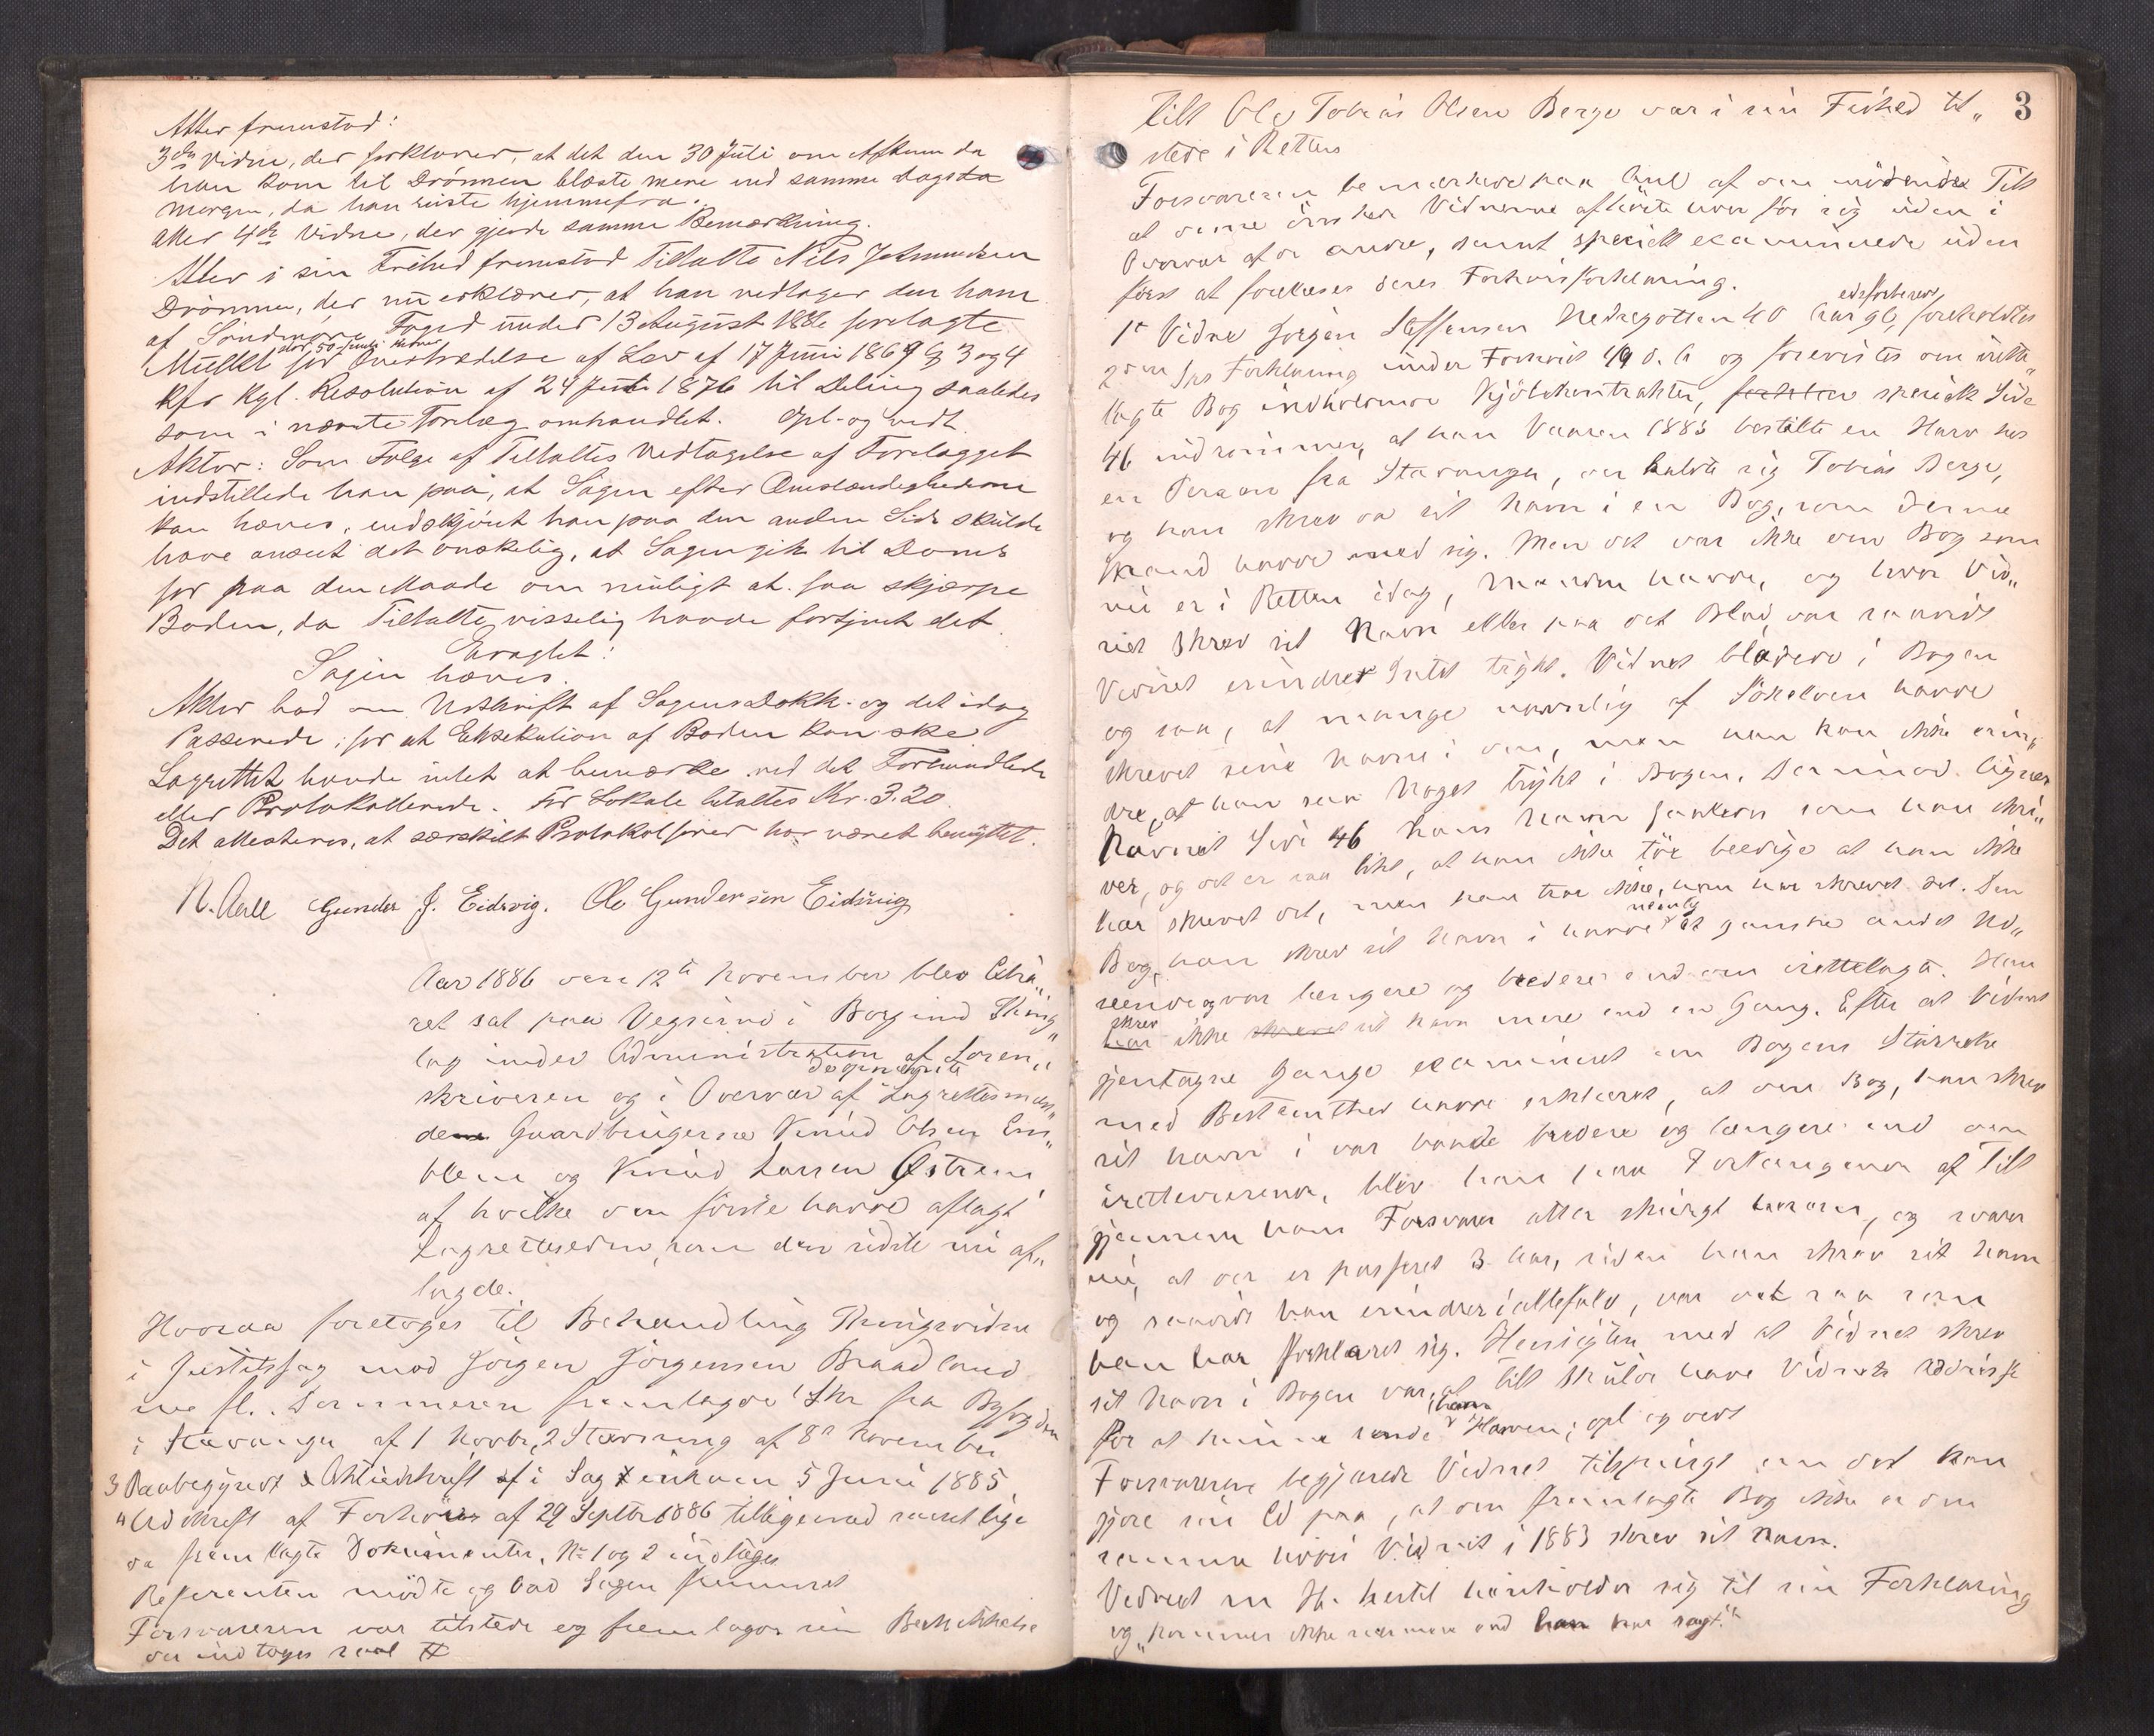 Atter fremstod:
3die Vidne, der forklarer, at det den 30 Juli om Aftnen da
han kom til Drönnen blæste mere end samme Dags
Morgen, da han reiste hjemmefra.
Atter 4de Vidne, der gjorde samme Bemærkning.
Atter i sin Frihed fremstod Tiltalte Nils
Drönnen, der nu erklærer, at han vedtager den ham
af Söndmöre Foged under 13 August 1886 forelagte
Mulkt for Overtrædelse af Lov af 17 Juni 1869 §§ 3 og 4
kfr Kgl. Resolution af 24 Juni 1876 til Deling saaledes
som i nævnte Forelæg omhandlet. Opl. og vedt.
Aktor: Som Følge af Tiltaltes Vedtagelse af Forelægget
indstillede han paa, at Sagen efter Omstændighederne
kan hæves, endskjönt han paa den anden Side skulde
have anseet det önskelig, at Sagen gik til Doms
for paa den Maade om muligt at faa skjærpe
Boden, da Tiltalte visselig havde fortjent det.
Eragtet:
Sagen hæves.
Aktor bad om Udskrift af Sagens Dokk. og det idag
Passerede, for at Exekution af Boden kan ske
Lagrettet havde intet at bemærke ved det Forhandlede
eller Protokollerede. For Lokale betaltes Kr. 3.20.
Det attesteres, at særskilt Protokolförer har været benyttet.
N. Aall Gunder J. Eidsvig. Ole Gundersen Eidsvig
Aar 1886 den 12te November blev Extra„
ret sat paa Vegsund i Borgund Thing„
lag under Administration af Soren„
skriveren og i Overvær af Lagrettesmæn„
dene Gaardbrugerne Knud Olsen Em„
blem og Knud Larsen Østrem
af hvilke den förste havde aflagt
Lagretteseden, som den sidste nu af„
lagde.
Hvorpaa foretoges til Behandling Thingsvidne
i Justitssag mod Jörgen Jörgensen Braadland
m fl. Dommeren fremlagde 1 Skr fra Byfogden
i Stavanger af 1 Novbr, 2 Stævning af 8de November
3 Paabegyndt Extraretsudskrift i Sag 5 Juni 1885
4 Udskrift af Forhöret af 29 Septbr 1886 tilligemed samtlige
da fremlagte Dokumenter, No 1 og 2 indtages
Referenten mödte og bad Sagen fremmet
Forsvareren var tilstede og fremlagde sin Beskikkelse
der indtages saal
3
Tilt Ole Tobias Olsen Berge var i sin Frihed til„
stede i Retten
Forsvareren bemærkede paa af den mödende Tilt
at denne önsker Vidnerne afhörte hver for sig uden i
Overvær af de andre, samt specielt examinerede uden
först at forelæses deres Forhörsforklaring.
1ste Vidne Jörgen Steffensen Nedregotten 40 Aar gl, edsforberedt, foreholdtes
2 sin Forklaring under Forhöret d. A og forevistes den irette„
lagte Bog indholdende Kjöbekontrakter, specielt Side
46 indrömmer, at han Vaaren 1883 bestilte en Harv hos
en Person fra Stavanger, der kaldte sig Tobias Berge,
og han skrev da sit Navn i en Bog, som denne
Mand havde med sig. Men det var ikke den Bog som
nu er i Retten idag, Manden havde, og hvor Vid„
net skrev sit Navn eller paa det Blad, var saavidt
Vidnet erindrer Intet trykt. Vidnet bladede i Bogen
og saa, at mange navnlig af Sökelven havde
skrevet sine Navne i den, men han kan ikke erin„
dre, at han saa Noget trykt i Bogen. Derimod ligner
Navnet Side 46 hans Navn saaledes som han skri„
ver, og det er saa likt, at han ikke tör beedige at han ikke
har skrevet det, men han tror ikke, han har skrevet det. Den
Bog, han skrev sit Navn i havde nemlig et ganske andet Ud„
seende og var længere og bredere end den irettelagte. Han
skrev ikke sit Navn mere end en Gang. Efter at Vidnet
gjentagne Gange examineret om Bogens Störrelse
med Bestemthed havde erklæret, at den Bog, han skrev
sit Navn i var baade bredere og længere end den
iretteværende, blev han paa Forlangende af Tilt
gjennem hans Forsvarer atter spurgt herom, og svarer
nu, at der er passeret 3 Aar, siden han skrev sit Navn
og saavidt han erindrer iallefald, var det saa som
han har forklaret sig. Hensigten med at Vidnet skrev
sit Navn i Bogen var, at Tilt skulde have Vidnets Addresse
for at kunne sende ham Harven; opl og vedt
Forsvareren begjærede Vidnet tilspurgt om det kan
gjöre sin Ed paa, at den fremlagte Bog ikke er den
samme hvori Vidnet i 1883 skrev sit Navn.
Vidnet m H. hertil henholder sig til sin Forklaring
og „kommer ikke nærmere end han har sagt.“